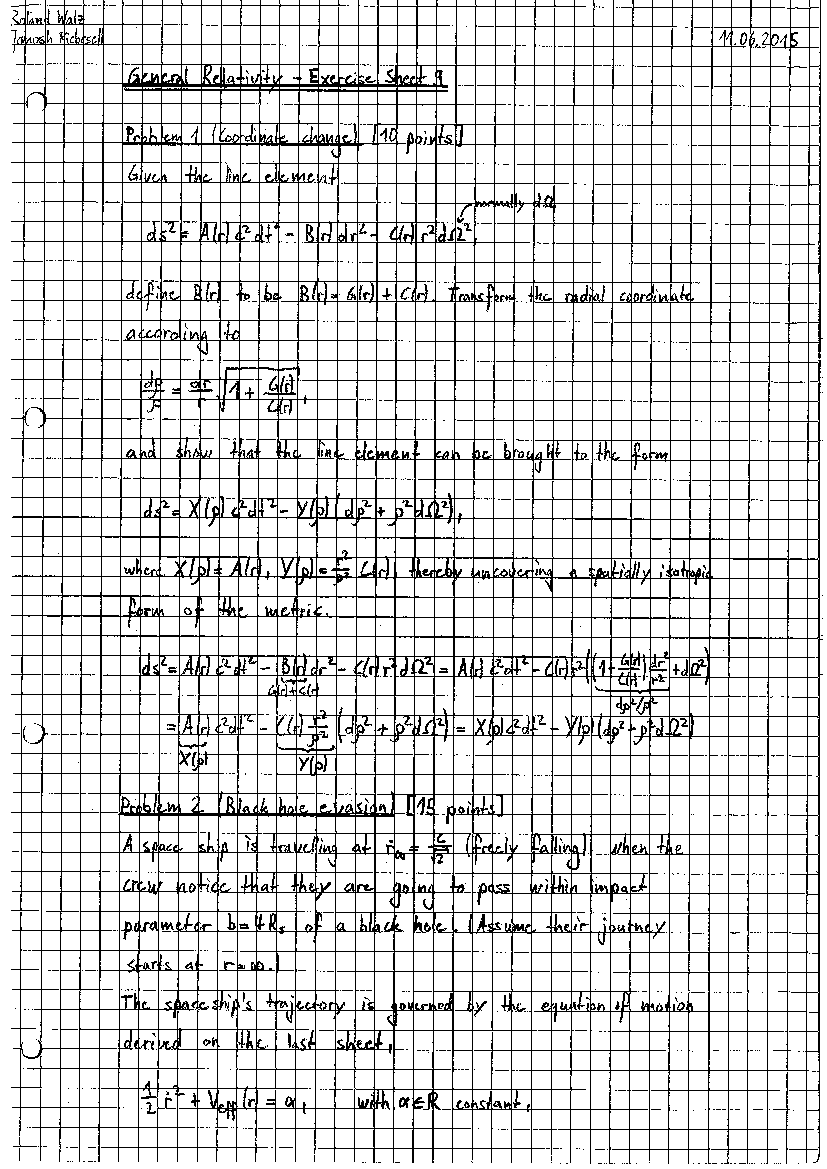 Roland Walz
Janosh Riebesell
11.06.2015
General Relativity - Exercise Sheet 9
Problem 1 (Coordinate change) [10 points]
Given the line element
normally dΩ
ds² = A(r) c² dt² - B(r) dr² - C(r) r² dΩ²,
define B(r) to be B(r) = G(r) + C(r). Transform the radial coordinate
according to
dρ/ρ = dr/r √(1 + G(r)/C(r)),
and show that the line element can be brought to the form
ds² = X(ρ) c² dt² - Y(ρ) (dρ² + ρ² dΩ²),
where X(ρ) = A(r), Y(ρ) = r²/ρ² C(r), thereby uncovering a spatially isotropic
form of the metric.
ds² = A(r) c² dt² - B(r) dr² - C(r) r² dΩ² = A(r) c² dt² - C(r) r² ((1 + G(r)/C(r)) dr²/r² + dΩ²)
G(r)+C(r) dρ²/ρ²
= A(r) c² dt² - C(r) r²/ρ² (dρ² + ρ² dΩ²) = X(ρ) c² dt² - Y(ρ) (dρ² + ρ² dΩ²)
X(ρ) Y(ρ)
Problem 2 (Black hole evasion) [15 points]
A space ship is travelling at ṙ∞ = c/√2 (freely falling) when the
crew notice that they are going to pass within impact
parameter b = 4 Rₛ of a black hole. (Assume their journey
starts at r = ∞.)
The spaceship's trajectory is governed by the equation of motion
derived on the last sheet,
1/2 ṙ² + V_eff(r) = α, with α ∈ ℝ constant,